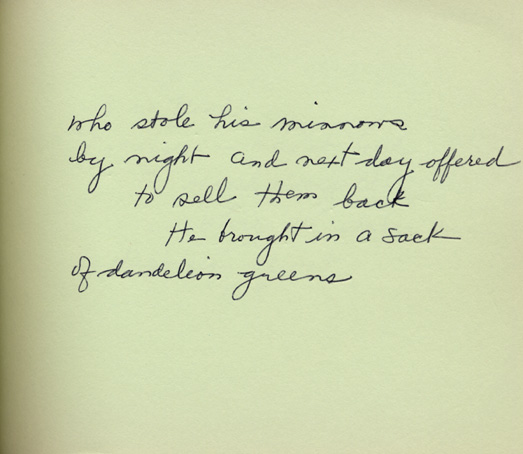 who stole his minnows
by night and next day offered
to sell them back
He brought in a sack
of dandelion greens